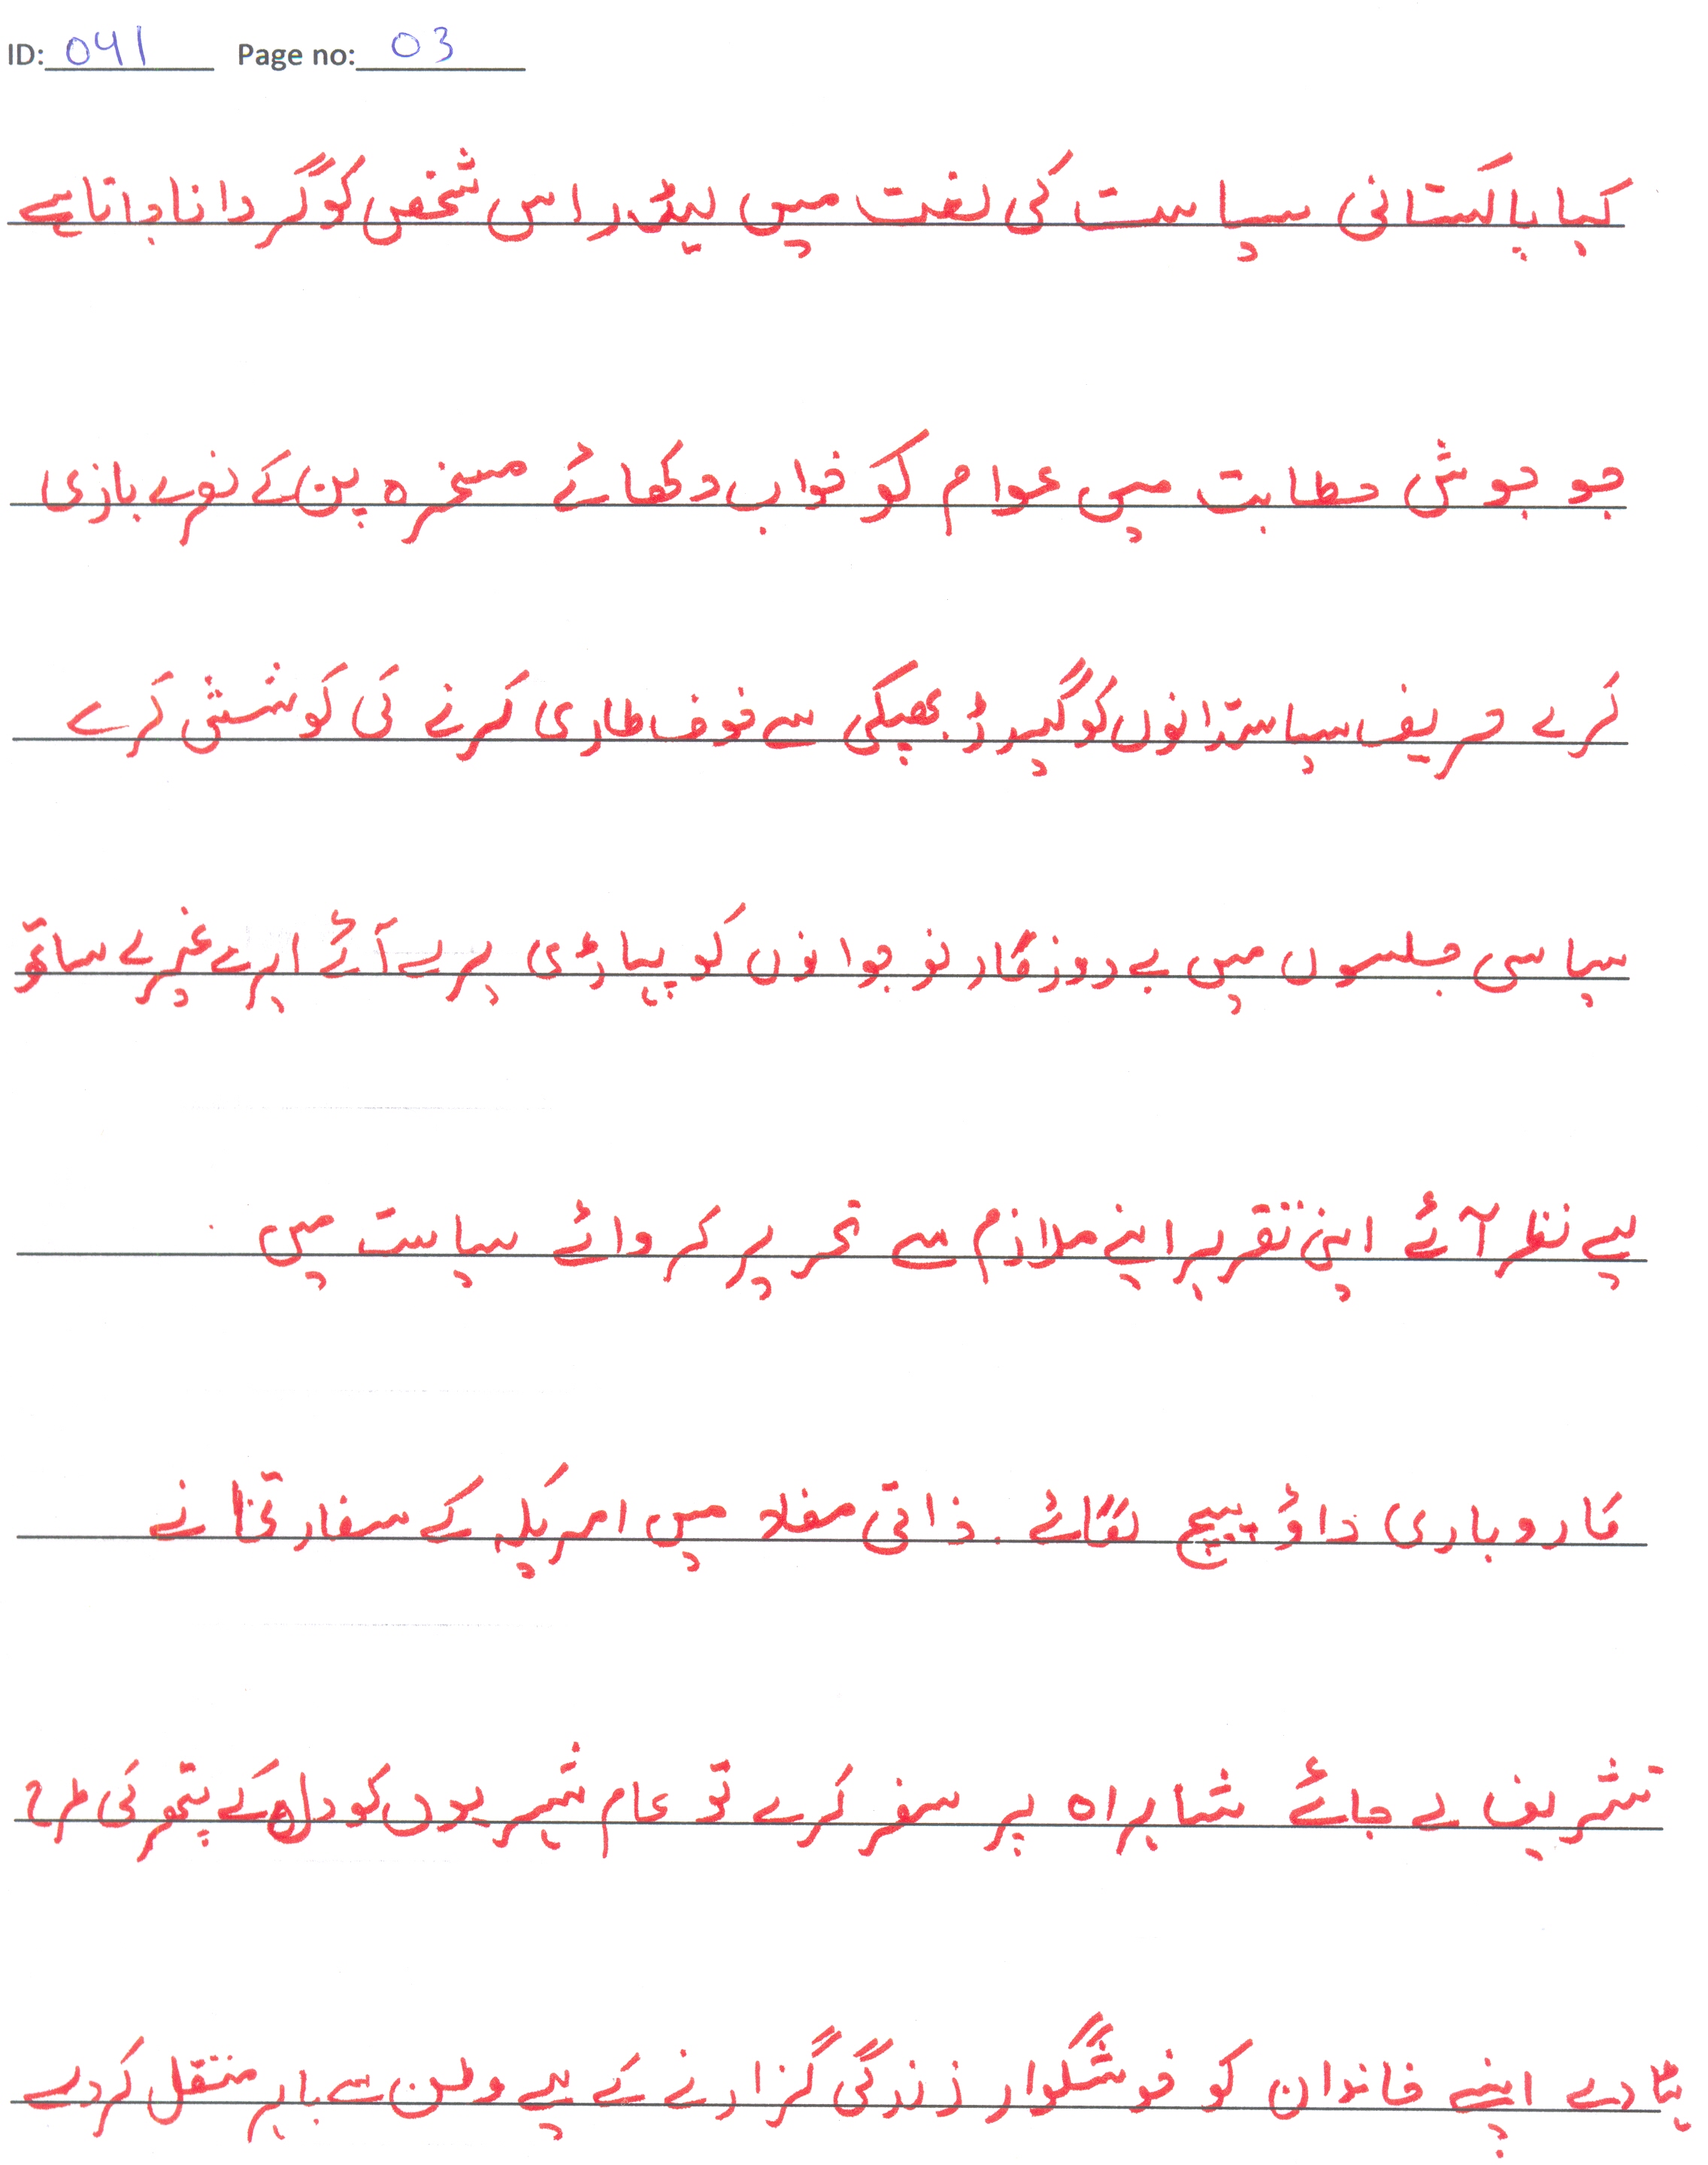 ID: 041 Page no: 03
کیا پاکستانی سیاست کی لغت میں لیڈر اس شخص کو گردانا جاتا ہے
جو جوش خطابت میں عوام کو خواب دکھائے مسخرہ پن کے نعرے بازی
کرے حریف سیاستدانوں کو گیدڑ بھبکی سے خوف طاری کرنے کی کوشش کرے
سیاسی جلسوں میں بے روزگار نوجوانوں کو پہاڑی پر لے آئے ایرے غیرے ساتھ
لیے نظر آئے اپنی تقریر اپنے ملازم سے تحریر کروائے سیاست میں
کاروباری داؤ پیچ لگائے . ذاتی مفاد میں امریکہ کے سفارتخانے
تشریف لے جائے شاہراہ پر سفر کرے تو عام شہریوں کو دل کے پتھر کی طرح
ہٹا دے اپنے خاندان کو خوشگوار زندگی گزارنے کے لیے وطن سے باہر منتقل کر دے